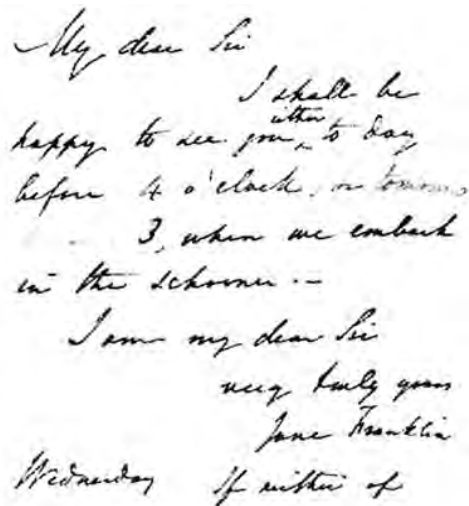 My dear Sir
I shall be
either
happy to see you ^ to day
before 4 o'clock, or tomorrow
3, when we embark
in the schooner. —
I am my dear Sir
very truly yours
Jane Franklin
Wednesday If neither of